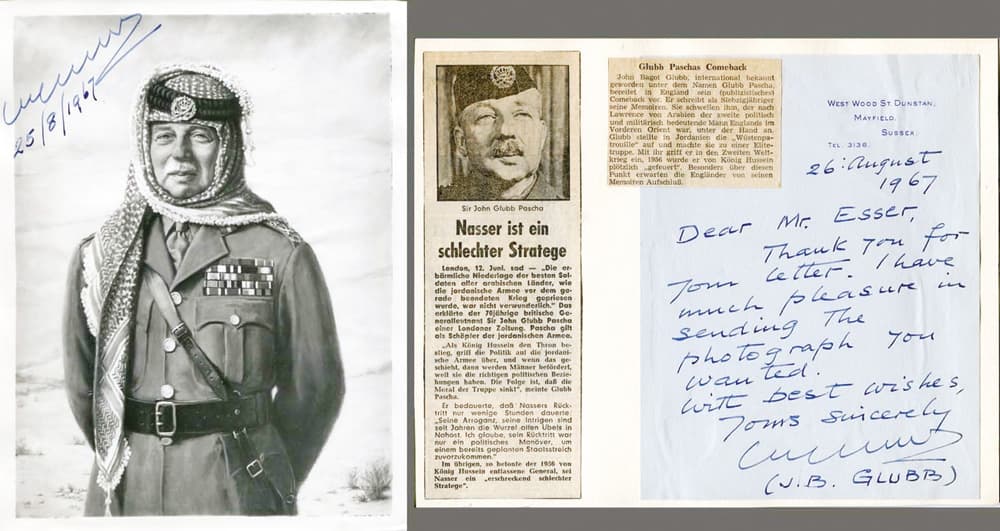 25/8/1967
Sir John Glubb Pascha
Nasser ist ein
schlechter Stratege
London, 12. Juni. sad — „Die er-
bärmliche Niederlage der besten Sol-
daten aller arabischen Länder, wie
die jordanische Armee vor dem ge-
rade beendeten Krieg gepriesen
wurde, war nicht verwunderlich.“ Das
erklärte der 70jährige britische Ge-
neralleutnant Sir John Glubb Pascha
einer Londoner Zeitung. Pascha gilt
als Schöpfer der jordanischen Armee.
„Als König Hussein den Thron be-
stieg, griff die Politik auf die jordani-
sche Armee über, und wenn das ge-
schieht, dann werden Männer befördert,
weil sie die richtigen politischen Bezie-
hungen haben. Die Folge ist, daß die
Moral der Truppe sinkt“, meinte Glubb
Pascha.
Er bedauerte, daß Nassers Rück-
tritt nur wenige Stunden dauerte:
„Seine Arroganz, seine Intrigen sind
seit Jahren die Wurzel allen Übels in
Nahost. Ich glaube, sein Rücktritt war
nur ein politisches Manöver, um
einem bereits geplanten Staatsstreich
zuvorzukommen.“
Im übrigen, so betonte der 1956 von
König Hussein entlassene General, sei
Nasser ein „erschreckend schlechter
Stratege“.
Glubb Paschas Comeback
John Bagot Glubb, international bekannt
geworden unter dem Namen Glubb Pascha,
bereitet in England sein (publizistisches)
Comeback vor. Er schreibt als Siebzigjähriger
seine Memoiren. Sie schweißen ihm, der nach
Lawrence von Arabien der zweite politisch
und militärisch bedeutende Mann Englands im
Vorderen Orient war, unter der Hand an.
Glubb stellte in Jordanien die „Wüstenpa-
trouille“ auf und machte sie zu einer Elite-
truppe. Mit ihr griff er in den Zweiten Welt-
krieg ein, 1956 wurde er von König Hussein
plötzlich „gefeuert“. Besonders über diesen
Punkt erwarten die Engländer von seinen
Memoiren Aufschluß.
West Wood St. Dunstan,
Mayfield,
Sussex.
Tel. 3136.
26: August
1967
Dear Mr. Esser,
Thank you for
your letter. I have
much pleasure in
sending the
photograph you
wanted.
With best wishes,
Yours sincerely
(J.B. GLUBB)